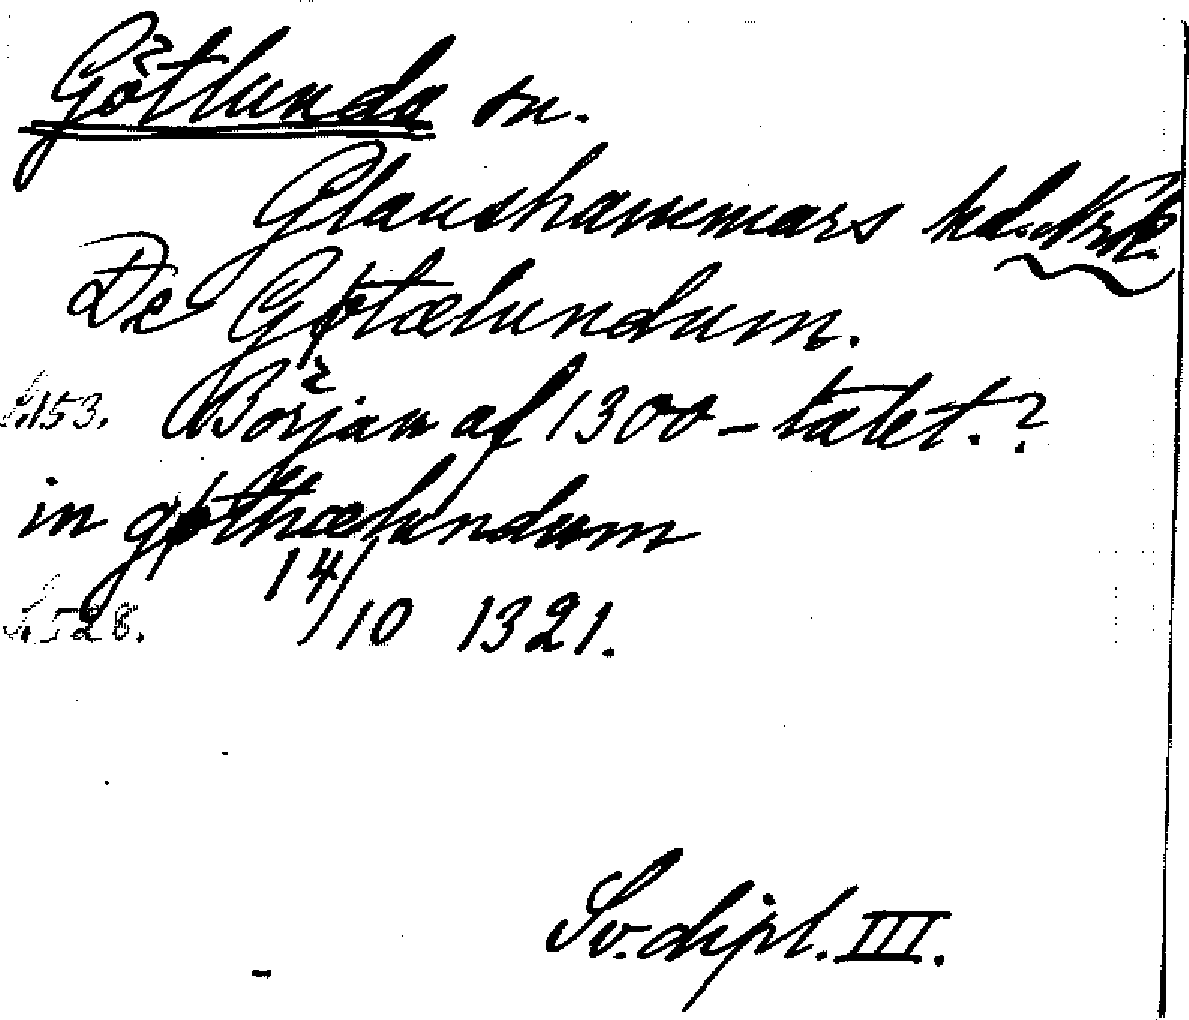 Götlunda sn.
Glanshammars hd. Nrk.
De Gøtælundum.
S. 153. Början af 1300-talet.?
in gøthælundum
S. 528. 14/10 1321.
Sv. dipl. III.